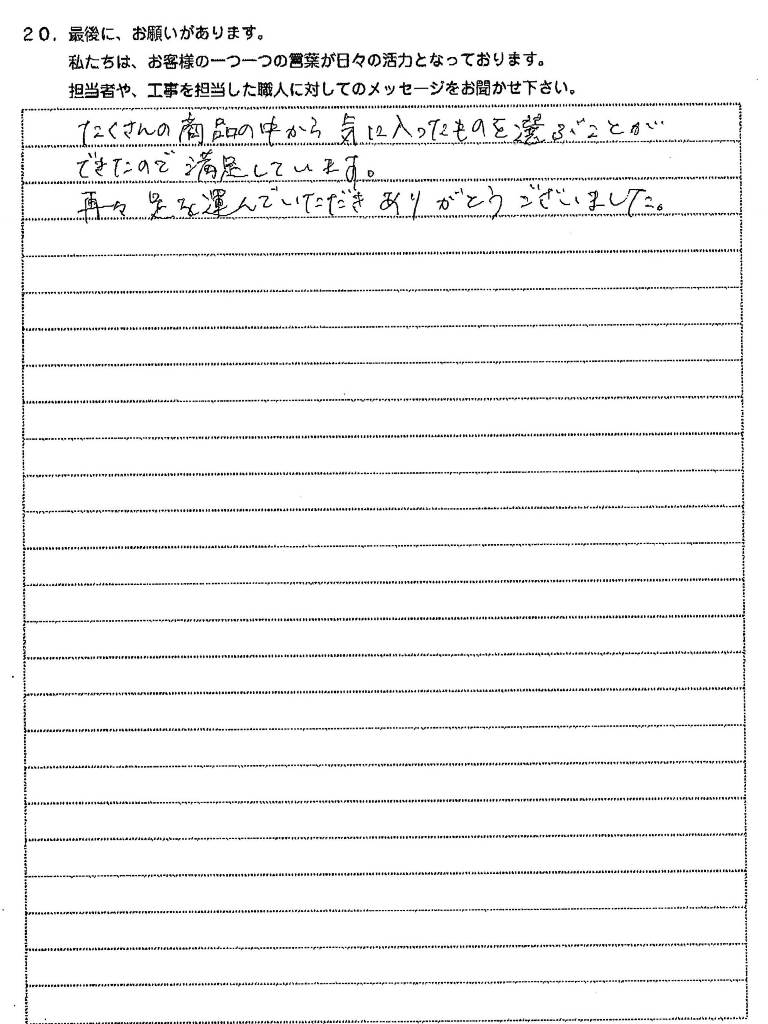 20. 最後に、お願いがあります。
私たちは、お客様の一つ一つの言葉が日々の活力となっております。
担当者や、工事を担当した職人に対してのメッセージをお聞かせ下さい。
たくさんの商品の中から 気に入ったものを選ぶことが
できたので 満足しています。
再々 足を運んでいただき ありがとう ございました。